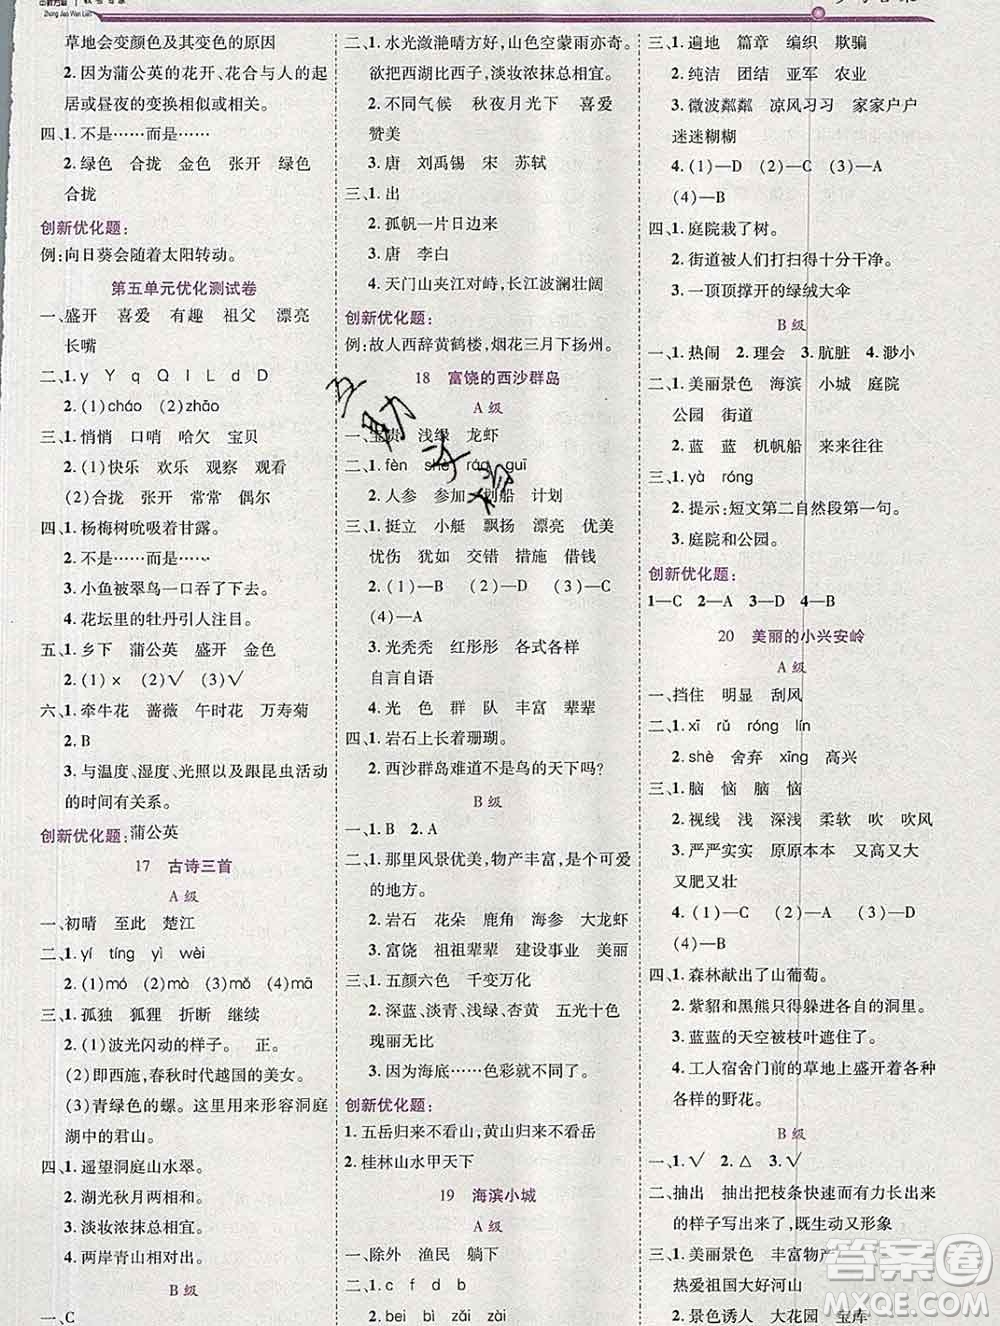 Zhong Jiao Wan Lian
草地会变颜色及其变色的原因
2. 因为蒲公英的花开、花合与人的起
居或昼夜的变换相似或相关。
四、1. 不是……而是……
2. 绿色 合拢 金色 张开 绿色
合拢
创新优化题:
例:向日葵会随着太阳转动。
第五单元优化测试卷
一、盛开 喜爱 有趣 祖父 漂亮
长嘴
二、1. y Y q Q l L
2. (1)cháo (2)zhāo
三、1. 悄悄 口哨 哈欠 宝贝
2. (1)快乐 欢乐 观察 观看
(2)合拢 张开 常常 偶尔
四、1. 杨梅树吮吸着甘露。
2. 不是……而是……
3. 小鱼被翠鸟一口吞了下去。
4. 花坛里的牡丹引人注目。
五、1. 乡下 蒲公英 盛开 金色
2. (1)× (2)√ (3)√
六、1. 牵牛花 蔷薇 午时花 万寿菊
2. B
3. 与温度、湿度、光照以及跟昆虫活动
的时间有关系。
创新优化题:蒲公英
17 古诗三首
A 级
一、初晴 至此 楚江
二、1. yí tíng yì wèi
2. (1)mó (2)mò (3)mó (4)mā
三、1. 孤独 狐狸 折断 继续
2. (1)波光闪动的样子。 正。
(2)即西施,春秋时代越国的美女。
(3)青绿色的螺。这里用来形容洞庭
湖中的君山。
四、1. 遥望洞庭山水翠。
2. 湖光秋月两相和。
3. 淡妆浓抹总相宜。
4. 两岸青山相对出。
B 级
一、C
二、1. 水光潋滟晴方好,山色空蒙雨亦奇。
欲把西湖比西子,淡妆浓抹总相宜。
2. 不同气候 秋夜月光下 喜爱
赞美
3. 唐 刘禹锡 宋 苏轼
三、1. 出
2. 孤帆一片日边来
3. 唐 李白
4. 天门山夹江对峙,长江波澜壮阔
创新优化题:
例:故人西辞黄鹤楼,烟花三月下扬州。
18 富饶的西沙群岛
A 级
一、宝贵 浅绿 龙虾
二、1. fèn shē ráo guī
2. 人参 参加 划船 计划
三、1. 挺立 小艇 飘扬 漂亮 优美
忧伤 犹如 交错 措施 借钱
2. (1)—B (2)—D (3)—C
(4)—A
3. 光秃秃 红彤彤 各式各样
自言自语
4. 光 色 群 队 丰富 辈辈
四、1. 岩石上长着珊瑚。
2. 西沙群岛难道不是鸟的天下吗?
B 级
一、1. B 2. A
二、1. 那里风景优美,物产丰富,是个可爱
的地方。
2. 岩石 花朵 鹿角 海参 大龙虾
3. 富饶 祖祖辈辈 建设事业 美丽
三、1. 五颜六色 千变万化
2. 深蓝、淡青、浅绿、杏黄 五光十色
瑰丽无比
3. 因为海底……色彩就不同。
创新优化题:
1. 五岳归来不看山,黄山归来不看岳
2. 桂林山水甲天下
19 海滨小城
A 级
一、除外 渔民 躺下
二、1. c f d b
2. bei bì zǎi zài
三、1. 遍地 篇章 编织 欺骗
2. 纯洁 团结 亚军 农业
3. 微波粼粼 凉风习习 家家户户
迷迷糊糊
4. (1)—D (2)—C (3)—A
(4)—B
四、1. 庭院栽了树。
2. 街道被人们打扫得十分干净。
3. 一顶顶撑开的绿绒大伞
B 级
一、1. 热闹 2. 理会 3. 肮脏 4. 渺小
二、1. 美丽景色 海滨 小城 庭院
公园 街道
2. 蓝 蓝 机帆船 来来往往
三、1. yà róng
2. 提示:短文第二自然段第一句。
3. 庭院和公园。
创新优化题:
1—C 2—A 3—D 4—B
20 美丽的小兴安岭
A 级
一、挡住 明显 刮风
二、1. xī rǔ róng lín
2. shè 舍弃 xīng 高兴
三、1. 脑 恼 脑 恼
2. 视线 浅 深浅 柔软 吹 吹风
3. 严严实实 原原本本 又高又大
又肥又壮
4. (1)—D (2)—A (3)—C
(4)—B
四、1. 森林献出了山葡萄。
2. 紫貂和黑熊只得躲进各自的洞里。
3. 蓝蓝的天空被枝叶遮住了。
4. 工人宿舍门前的草地上盛开着各种
各样的野花。
B 级
一、1. √ 2. △ 3. √
二、抽出 抽出把枝条快速而有力长出来
的样子写出来了,既生动又形象
三、1. 美丽景色 丰富物产
热爱祖国大好河山
2. 景色诱人 大花园 宝库
答案圈
MXQE.COM